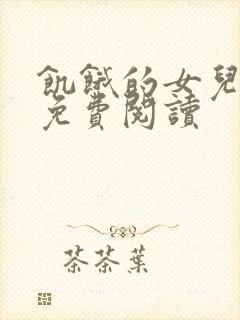 飢餓的女兒
免費閱讀
茶茶葉